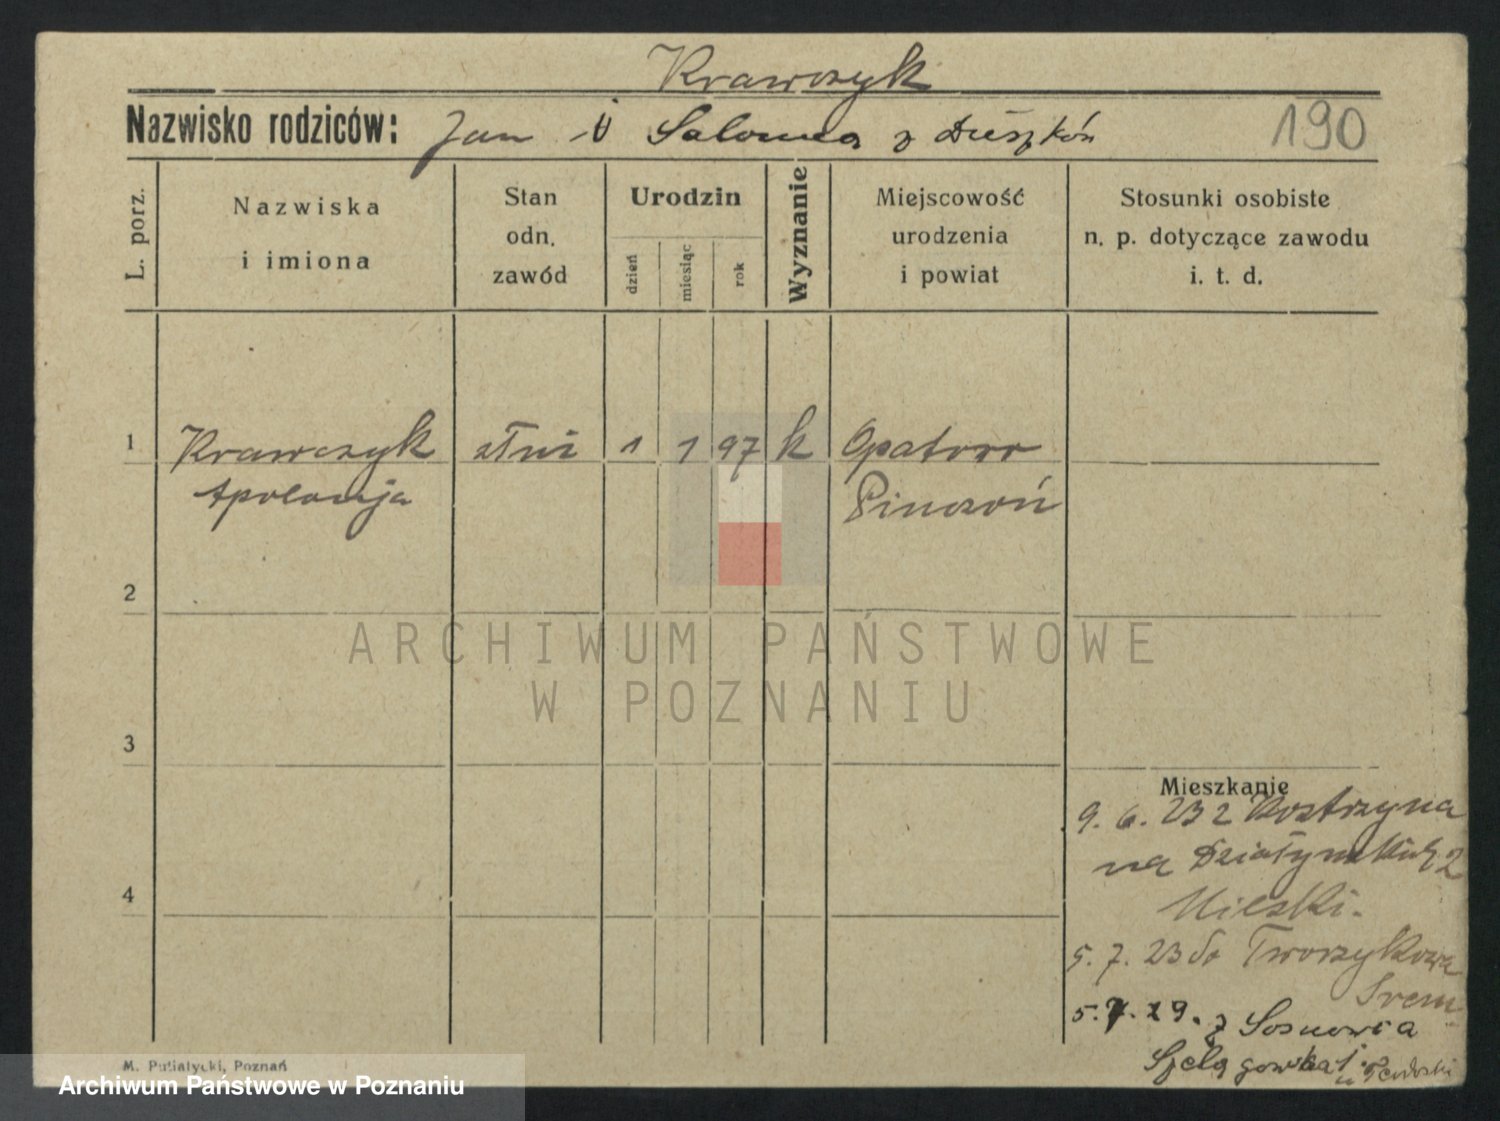 Krawczyk
Nazwisko rodziców: Jan i Salomea z
190
L. porz.
Nazwiska
i imiona
Stan
odn.
zawód
Urodzin
dzień
miesiąc
rok
Wyznanie
Miejscowość
urodzenia
i powiat
Stosunki osobiste
n. p. dotyczące zawodu
i. t. d.
1 Krawczyk 1 1 97 k Opatowo
Apolonja Pinczoń
2
3
4
ARCHIWUM PAŃSTWOWE
W POZNANIU
Mieszkanie
9. 6. 23 z Kostrzyna
na Działyńskich 2
5. 7. 23 do Tworzykowa
Srem
5. 7. 29. z Sosnowca
Szelągowska 1
M. Putiatycki, Poznań
Archiwum Państwowe w Poznaniu